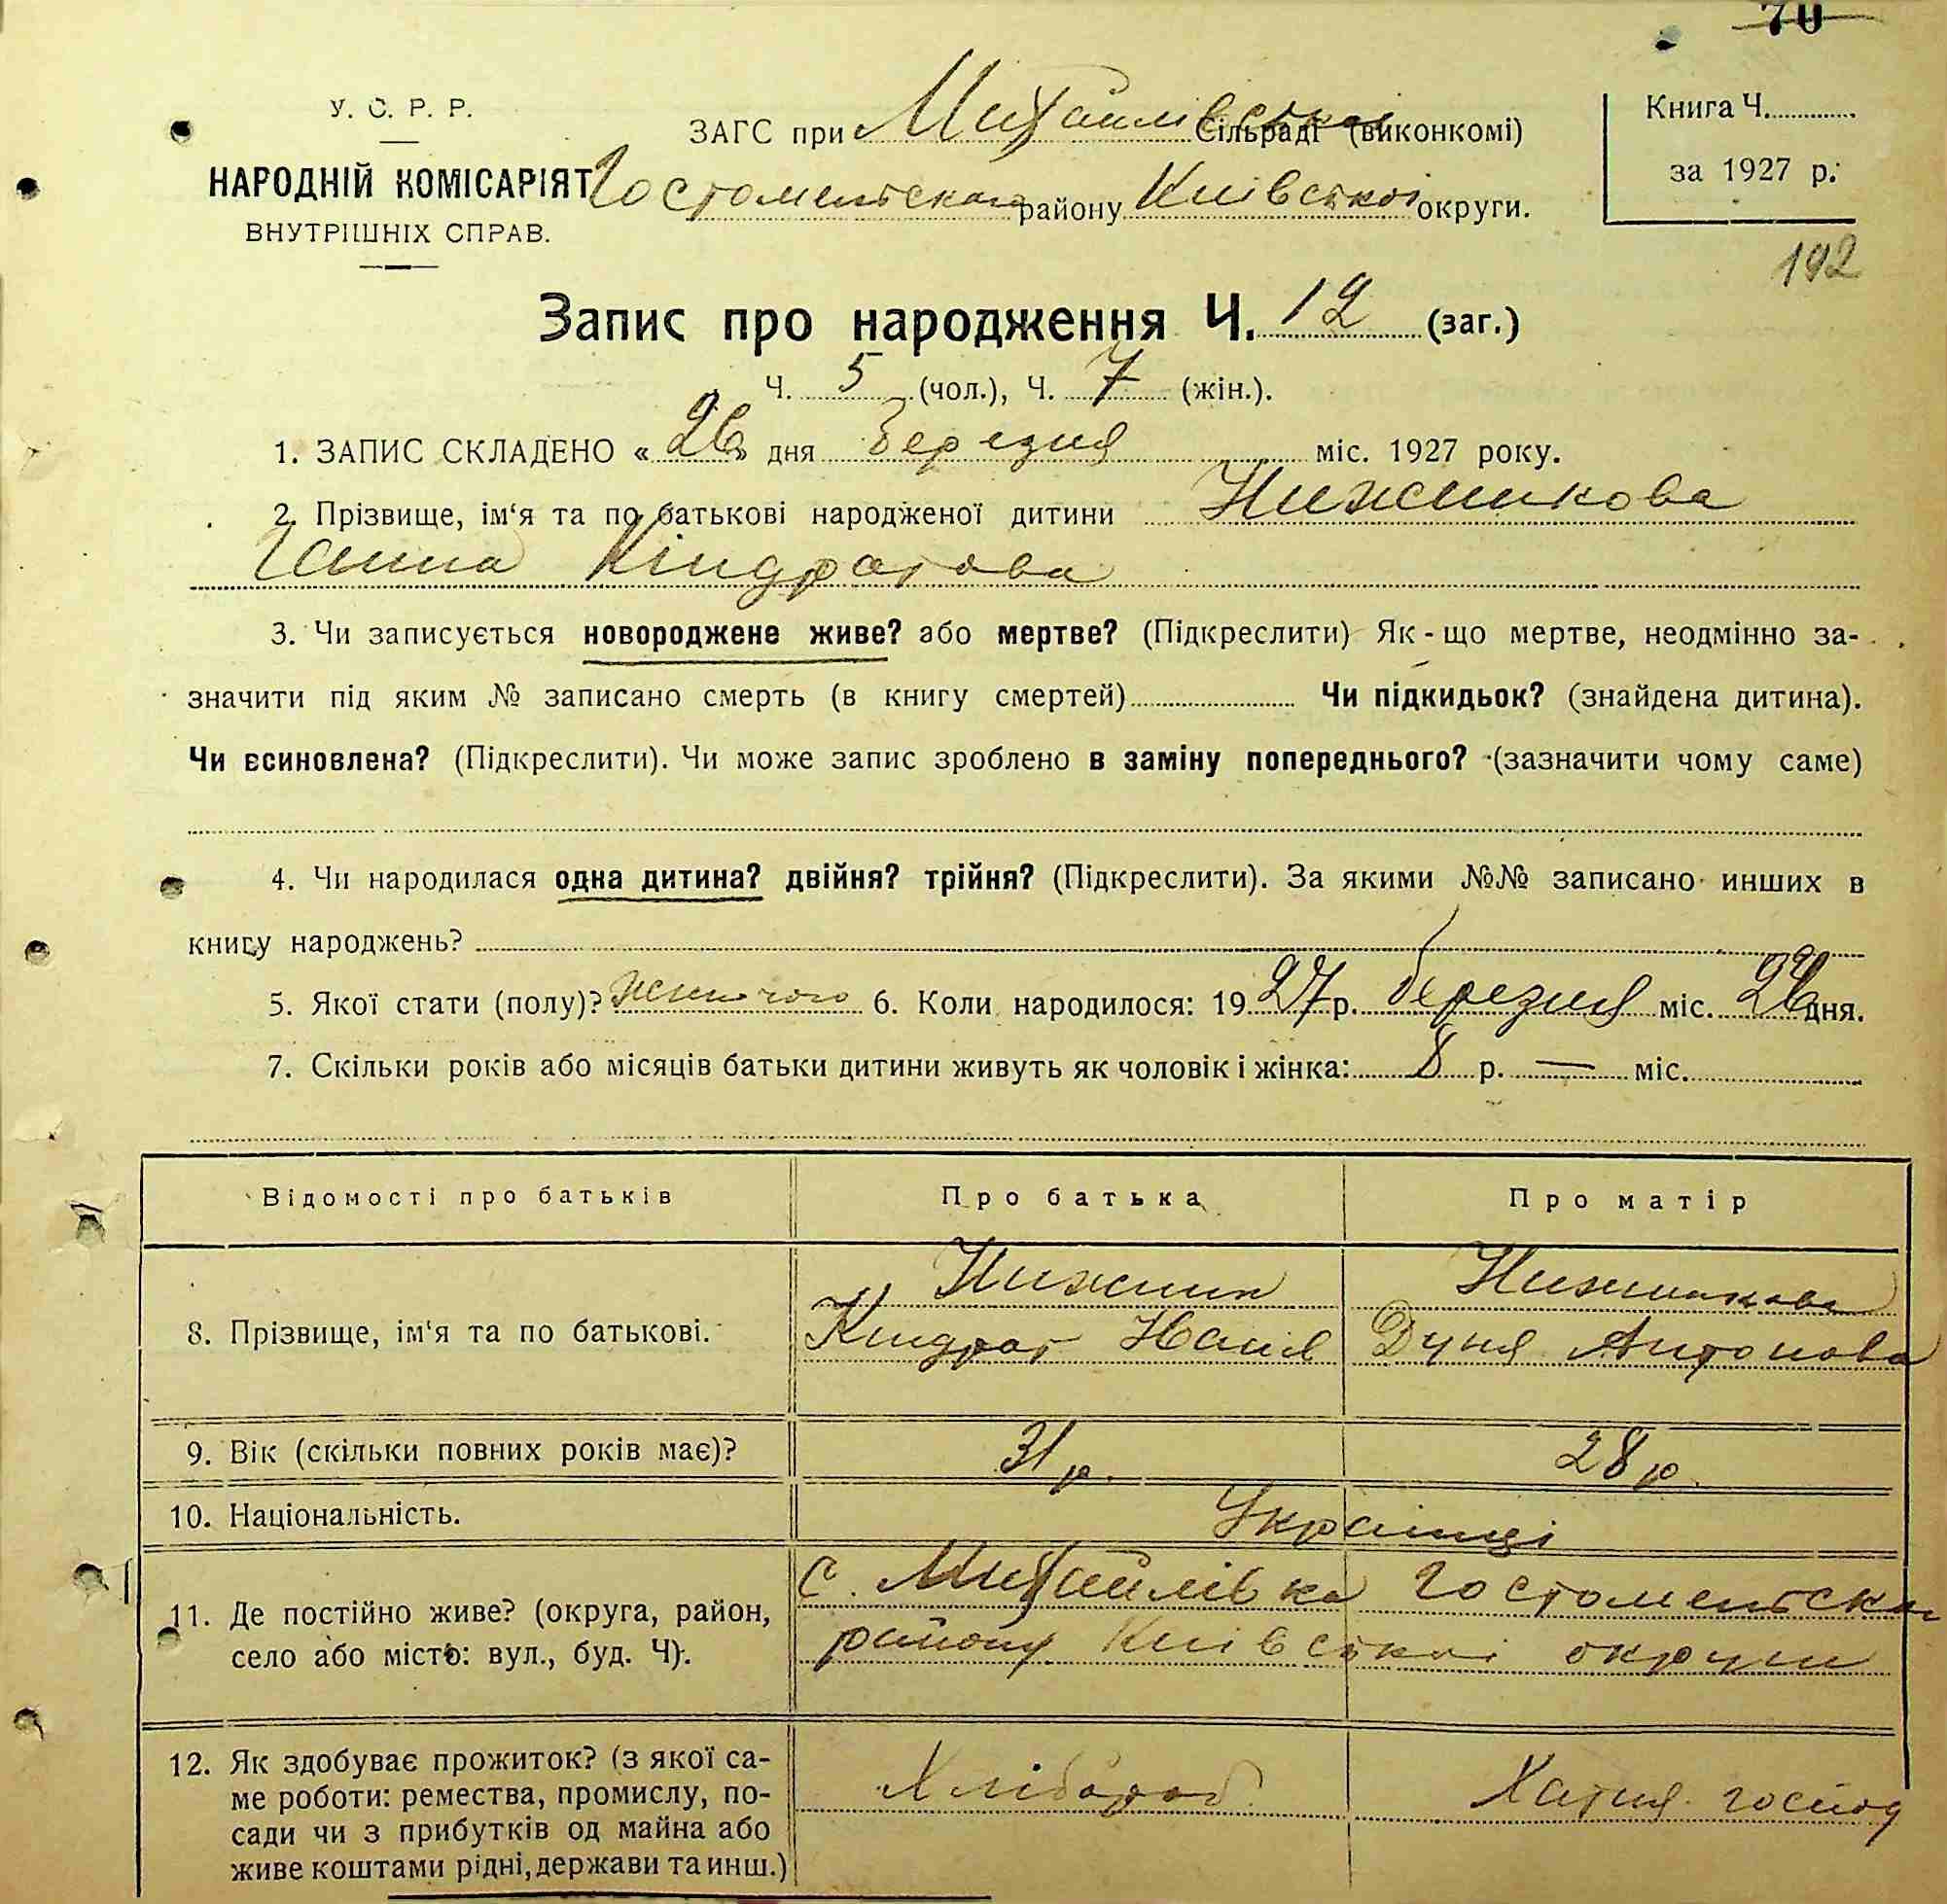 70
У. С. Р. Р.
НАРОДНІЙ КОМІСАРІЯТ
ВНУТРІШНІХ СПРАВ.
ЗАГС при Михайлівській Сільраді (виконкомі)
Гостомельского району Київської округи.
Книга Ч.
за 1927 р.
192
Запис про народження Ч. 12 (заг.)
Ч. 5 (чол.), Ч. 7 (жін.).
1. ЗАПИС СКЛАДЕНО « 26 » дня Березня міс. 1927 року.
2. Прізвище, ім‘я та по батькові народженої дитини Нижникова
Ганна Кіндратова
3. Чи записується новороджене живе? або мертве? (Підкреслити) Як - що мертве, неодмінно за-
значити під яким № записано смерть (в книгу смертей) Чи підкидьок? (знайдена дитина).
Чи всиновлена? (Підкреслити). Чи може запис зроблено в заміну попереднього? (зазначити чому саме)
4. Чи народилася одна дитина? двійня? трійня? (Підкреслити). За якими №№ записано инших в
книгу народжень?
5. Якої стати (полу)? жиночого 6. Коли народилося: 19 27 р. березня міс. дня.
7. Скільки років або місяців батьки дитини живуть як чоловік і жінка: 8 р. — міс.
Відомості про батьків Про батька Про матір
8. Прізвище, ім‘я та по батькові. Нижник Нижникова
Кіндрат Дуня Антонова
9. Вік (скільки повних років має)? 31 р. 28 р.
10. Національність. Українці
11. Де постійно живе? (округа, район, с. Михайлівка Гостомельско
село або місто: вул., буд. Ч). району Київської округи
12. Як здобуває прожиток? (з якої са-
ме роботи: ремества, промислу, по- Хлібороб Хатня господ
сади чи з прибутків од майна або
живе коштами рідні, держави та инш.)